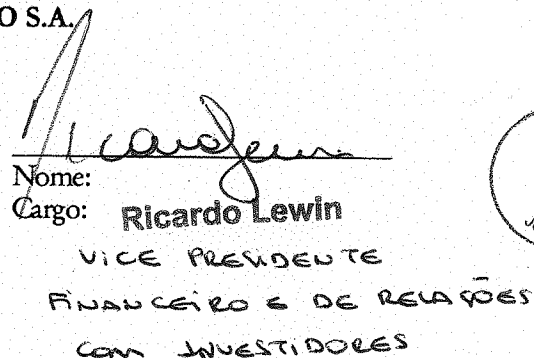 O S.A.
Nome:
Cargo: Ricardo Lewin
VICE PRESIDENTE
FINANCEIRO E DE RELAÇÕES
COM INVESTIDORES